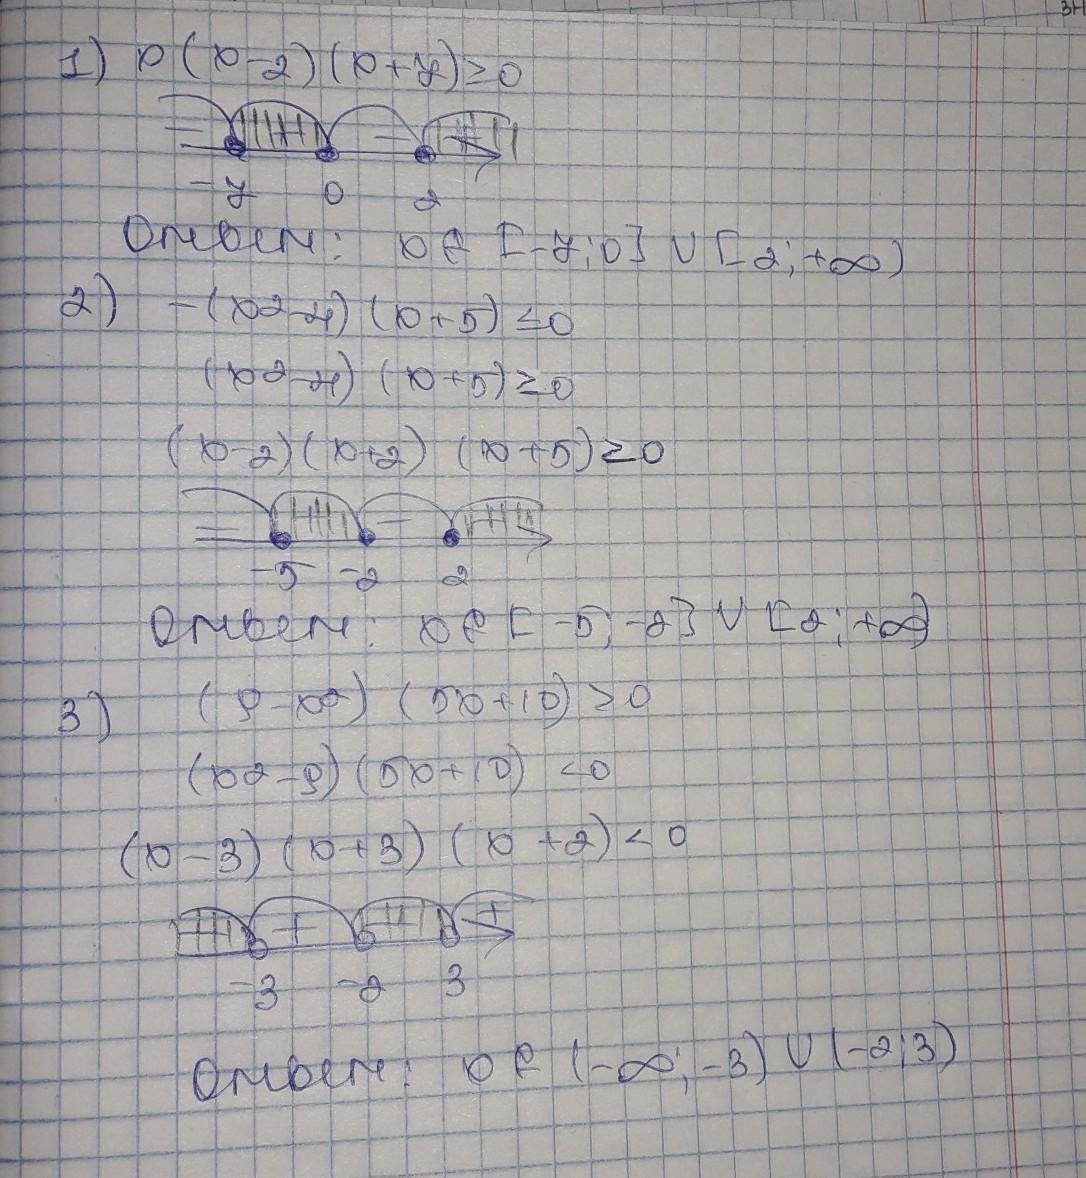 1) x(x-2)(x+7)≥0
- + - +
-7 0 2
Ответ: x ∈ [-7;0] ∪ [2;+∞)
2) -(x2-4)(x+5)≤0
(x2-4)(x+5)≥0
(x-2)(x+2)(x+5)≥0
- + - +
-5 -2 2
Ответ: x ∈ [-5;-2] ∪ [2;+∞)
3) (9-x2)(5x+10)>0
(x2-9)(5x+10)<0
(x-3)(x+3)(x+2)<0
+ +
-3 -2 3
Ответ: x ∈ (-∞;-3) ∪ (-2;3)